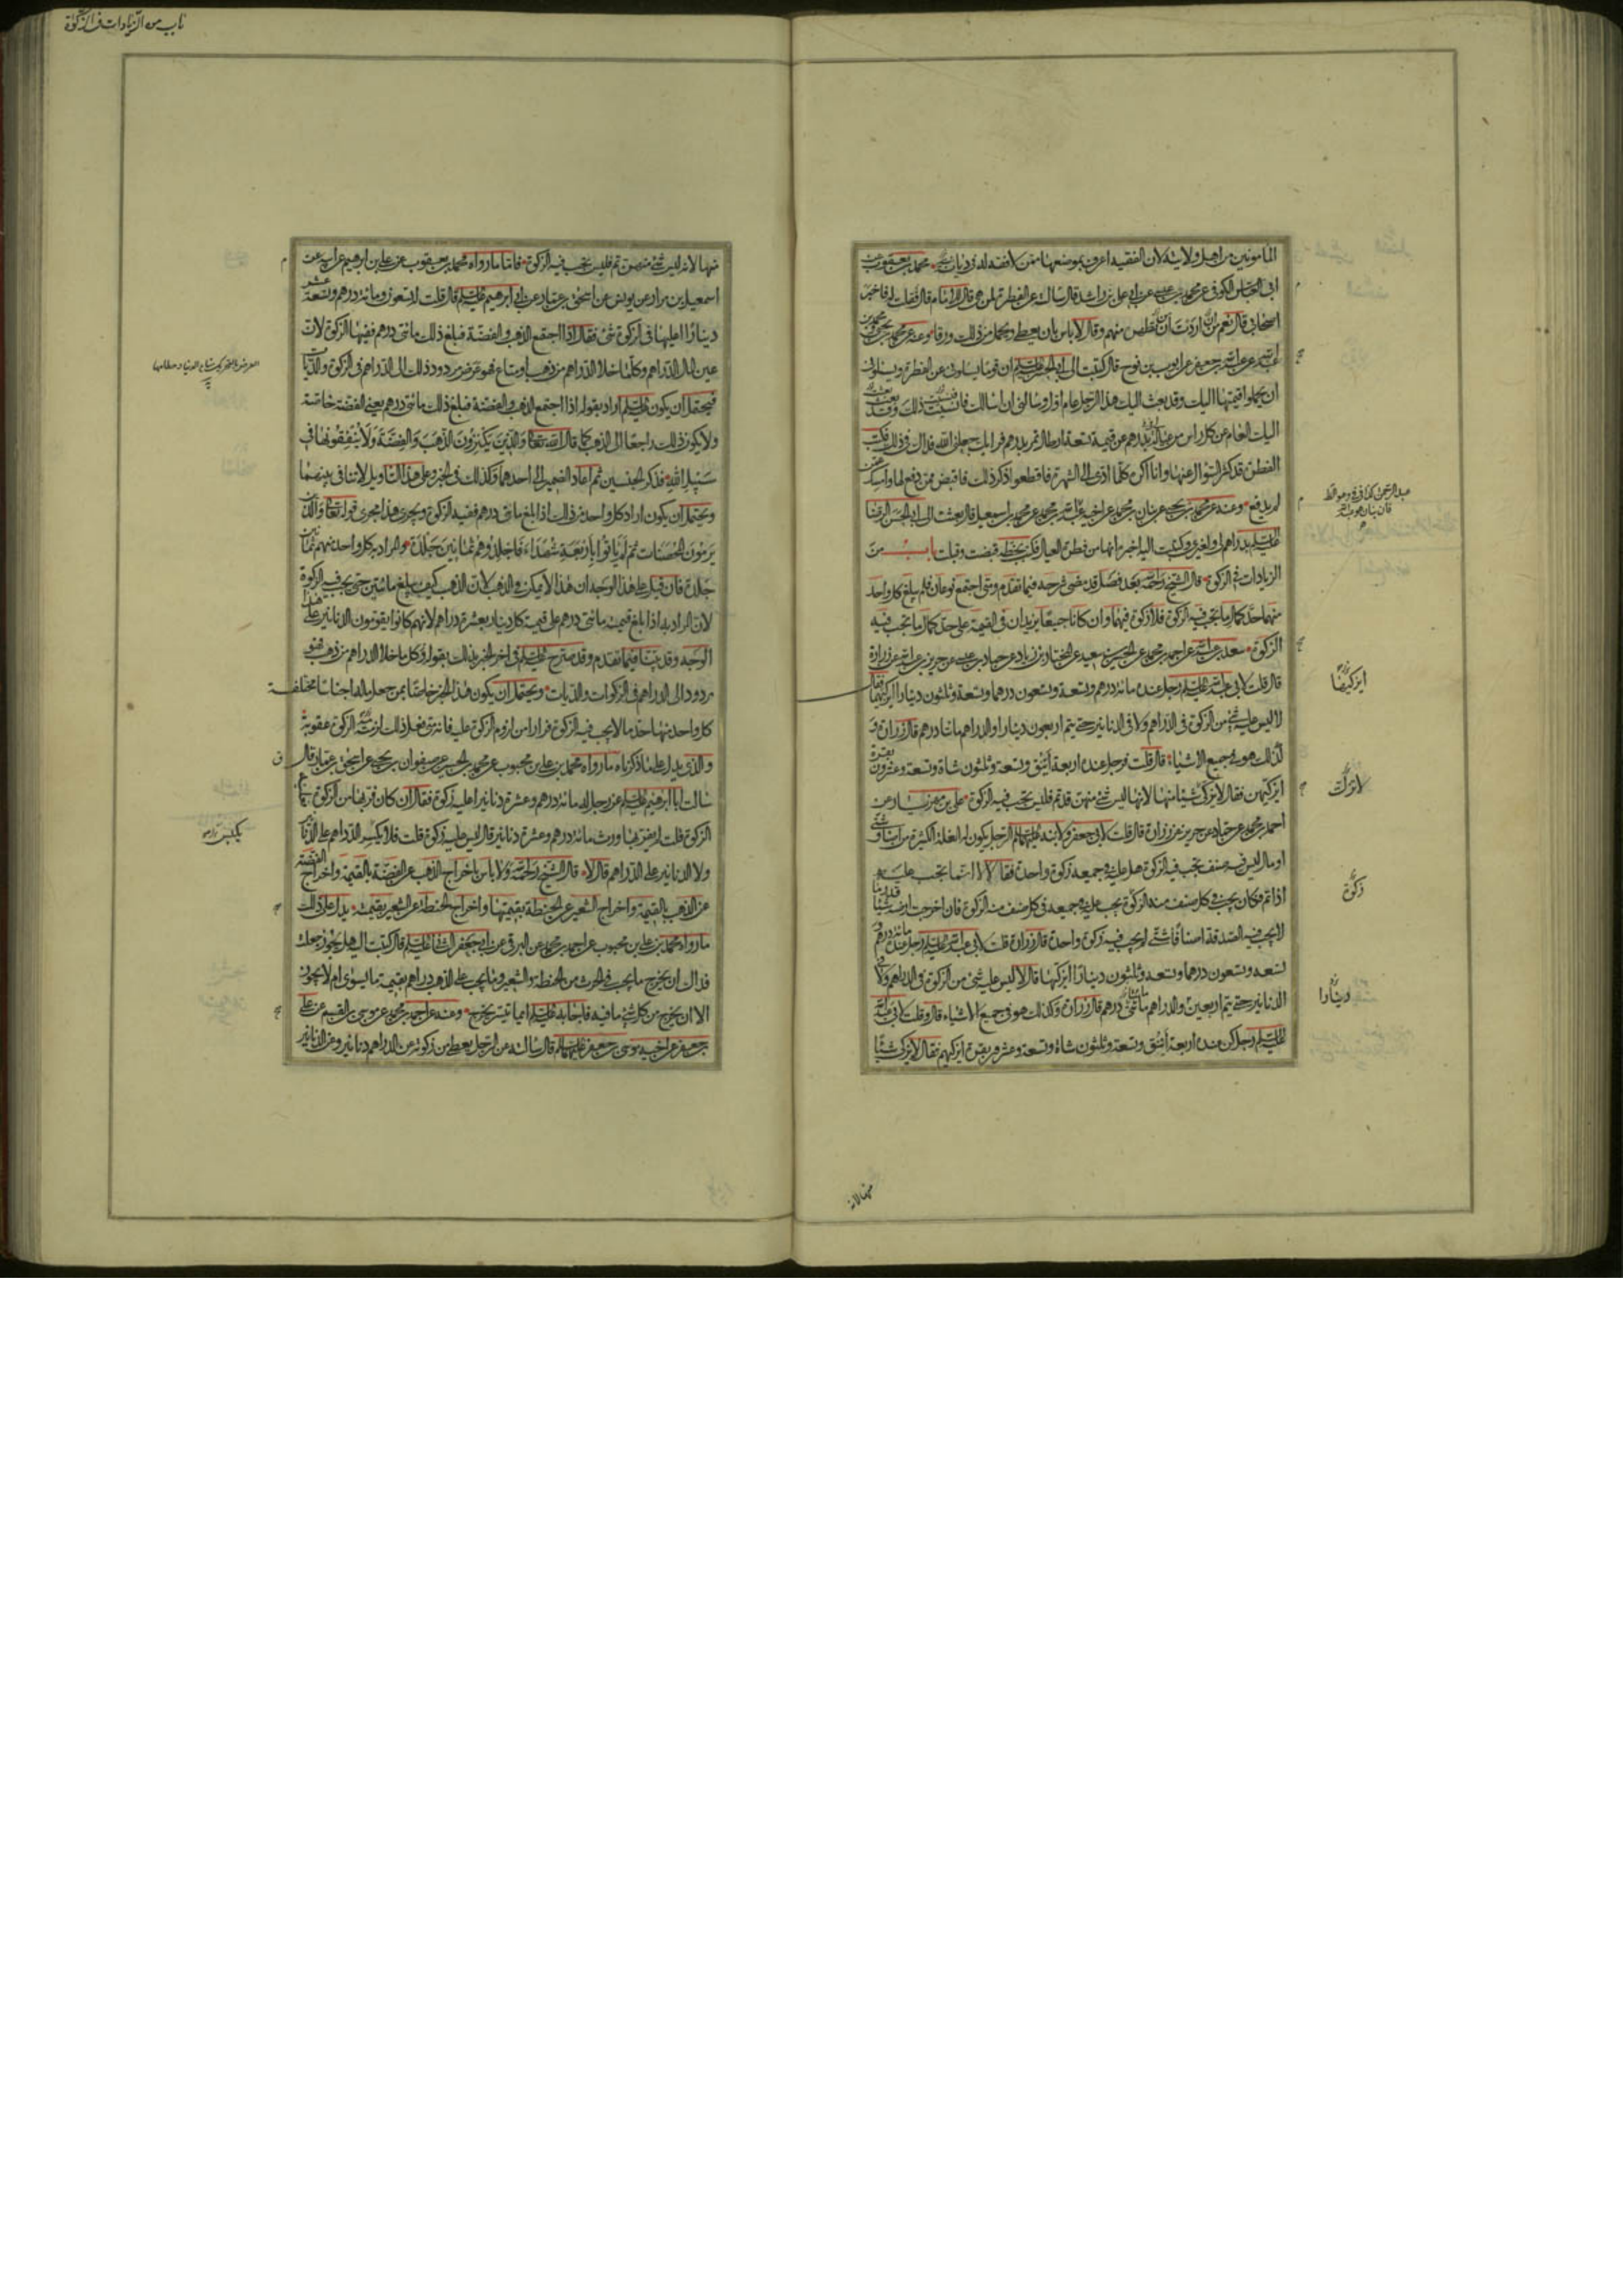 باب من الزيادات في الزكوة
المأمونين من اهل ولايته لان الفقيه اعرف بموضعها ممن لا فقه له في ديانته محمد بن يعقوب عن
ابي العباس الكوفي عن محمد بن عيسى عن ابي علي بن راشد قال سالته عن الفطرة لمن هي قال للامام قال فقلت له فاخبر
اصحابي قال نعم من اردت ان تطهره منهم وقال لا باس بان يعطى ويحمل ثمن ذلك ورقا وعنه عن محمد بن يحيى ومحمد بن
عبد الله عن عبد الله بن جعفر عن ايوب بن نوح قال كتبت الى ابي الحسن عليه السلم ان قوما يسالوني عن الفطرة ويسالوني
ان يحملوا قيمتها اليك وقد بعث اليك هذا الرجل عام اول وسالني ان اسالك فانسيت ذلك وقد بعث
اليك العام عن كل راس من عياله بدرهم عن قيمة تسعة ارطال تمر بدرهم فرايك جعلني الله فداك في ذلك فكتب
الفطرة قد كثر السؤال عنها وانا اكره كلما ادى الى الشهرة فاقطعوا ذكر ذلك فاقبض ممن دفع لها وامسك عمن
لم يدفع وعنه عن محمد بن يحيى عن بنان بن محمد عن اخيه عبد الله بن محمد عن محمد بن اسمعيل قال بعثت الى ابي الحسن الرضا
عليه السلم بدراهم لي ولغيري وكتبت اليه اخبره انها من فطرة العيال فكتب بخطه قبضت وقبلت باب من
الزيادات في الزكوة قال الشيخ رحمه الله بعد فصل قد مضى شرحه فيما تقدم ومتى اجتمع نوعان فلم يبلغ كل واحد
منهما حد كمال ما تجب فيه الزكوة فلا زكوة فيهما وان كانا جميعا يزيدان في القيمة على حد كمال ما تجب فيه
الزكوة سعد بن عبد الله عن احمد بن محمد عن الحسين بن سعيد عن المختار بن زياد عن حماد بن عيسى عن حريز بن عبد الله عن زرارة
قال قلت لابي عبد الله عليه السلم رجل عنده مائة درهم وتسعة وتسعون درهما وتسعة وثلثون دينارا ايزكيها فقال
لا ليس عليه شئ من الزكوة في الدراهم ولا في الدنانير حتى يتم اربعون دينارا والدراهم مائتا درهم قال زرارة و
كذلك هو في جميع الاشياء قال قلت فرجل عنده اربعة اينق وتسعة وثلثون شاة وتسعة وعشرون بقرة
ايزكيهن فقال لا يزكي شيئا منها لانها ليس شئ منهن قد تم فليس تجب فيه الزكوة علي بن مهزيار عن
احمد بن محمد عن حماد عن حريز عن زرارة قال قلت لابي جعفر ولابنه عليهما السلم الرجل يكون له الغلة الكثيرة من اصناف شتى
او مال ليس فيه صنف تجب فيه الزكوة هل عليه في جميعه زكوة واحدة فقالا لا انما تجب عليه
اذا تم فكان يجب في كل صنف منه الزكوة يجب عليه في جميعه في كل صنف منه الزكوة فان اخرجت ارضه شيئا قدر ما
لا يجب فيه الصدقة اصنافا شتى لم يجب فيه زكوة واحدة قال زرارة قلت لابي عبد الله عليه السلم رجل عنده مائة درهم و
تسعة وتسعون درهما وتسعة وثلثون دينارا ايزكيها قال لا ليس عليه شئ من الزكوة في الدراهم ولا في
الدنانير حتى يتم اربعين والدراهم مائتي درهم قال زرارة وكذلك هو في جميع الاشياء قال وقلت لابي عبد الله
عليه السلم رجل كن عنده اربعة اينق وتسعة وثلثون شاة وتسعة وعشرون بقرة ايزكيهم فقال لا يزكي شيئا
ايزكيها
لا يزكي
زكوة
دينارا
منها لانه
منها لانه ليس شئ منهن تم فليس تجب فيه الزكوة فاما ما رواه محمد بن يعقوب عن علي بن ابراهيم عن ابيه عن
اسمعيل بن مرار عن يونس عن اسحق بن عمار عن ابي ابراهيم عليه السلم قال قلت له تسعون ومائة درهم وتسعة عشر
دينارا اعليها في الزكوة شئ فقال اذا اجتمع الذهب والفضة فبلغ ذلك مائتي درهم ففيها الزكوة لان
عين المال الدراهم وكلما خلا الدراهم من ذهب او متاع فهو عرض مردود ذلك الى الدراهم في الزكوة والديات
فيحتمل ان يكون عليه السلم اراد بقوله اذا اجتمع الذهب والفضة فبلغ ذلك مائتي درهم يعني الفضة خاصة
ولا يكون ذلك راجعا الى الذهب كما قال الله تعالى والذين يكنزون الذهب والفضة ولا ينفقونها في
سبيل الله فذكر الجنسين ثم اعاد الضمير الى احدهما وكذلك في الخبر وعلى هذا التاويل لا تنافي بينهما
ويحتمل ان يكون اراد كل واحد من ذلك اذا بلغ مائتي درهم ففيه الزكوة ويجري هذا مجرى قوله تعالى والذين
يرمون المحصنات ثم لم ياتوا باربعة شهداء فاجلدوهم ثمانين جلدة والمراد به كل واحد منهم ثمانين
جلدة فان قيل على هذا الوجه ان هذا لا يمكن في الذهب لان الذهب كيف يبلغ مائتين حتى يجب فيه الزكوة
لان المراد به اذا بلغ قيمته مائتي درهم على قيمة كل دينار بعشرة دراهم لانهم كانوا يقومون الدنانير على هذا
الوجه وقد بينا فيما تقدم وقد صرح عليه السلم في اخر الخبر بذلك بقوله وكل ما خلا الدراهم من ذهب فهو
مردود الى الدراهم في الزكوات والديات ويحتمل ان يكون هذا الخبر خاصا بمن جعل ماله اجناسا مختلفة
كل واحد منها حد ما لا يجب فيه الزكوة فرارا من لزوم الزكوة عليه فانه متى فعل ذلك لزمته الزكوة عقوبة
والذي يدل على ما ذكرناه ما رواه محمد بن علي بن محبوب عن محمد بن الحسين عن صفوان بن يحيى عن اسحق بن عمار قال
سالت ابا ابراهيم عليه السلم عن رجل له مائة درهم وعشرة دنانير اعليه زكوة فقال ان كان فر بها من الزكوة فعليه
الزكوة قلت لم يفر بها ورث مائة درهم وعشرة دنانير قال ليس عليه زكوة قلت فلا يكسر الدراهم على الدنانير
ولا الدنانير على الدراهم قال لا قال الشيخ رحمه الله ولا باس باخراج الذهب عن الفضة بالقيمة واخراج الفضة
عن الذهب بالقيمة واخراج الشعير عن الحنطة بقيمتها واخراج الحنطة عن الشعير بقيمته يدل على ذلك
ما رواه محمد بن علي بن محبوب عن احمد بن محمد عن البرقي عن ابي جعفر الثاني عليه السلم قال كتبت اليه هل يجوز جعلت
فداك ان يخرج ما يجب في الحرث من الحنطة والشعير وما يجب على الذهب دراهم بقيمة ما يسوى ام لا يجوز
الا ان يخرج من كل شئ ما فيه فاجابه عليه السلم ايما تيسر يخرج وعنه عن احمد بن محمد عن موسى بن القسم عن علي
بن جعفر عن اخيه موسى بن جعفر عليهما السلم قال سالته عن الرجل يعطي من زكوته عن الدراهم دنانير وعن الدنانير